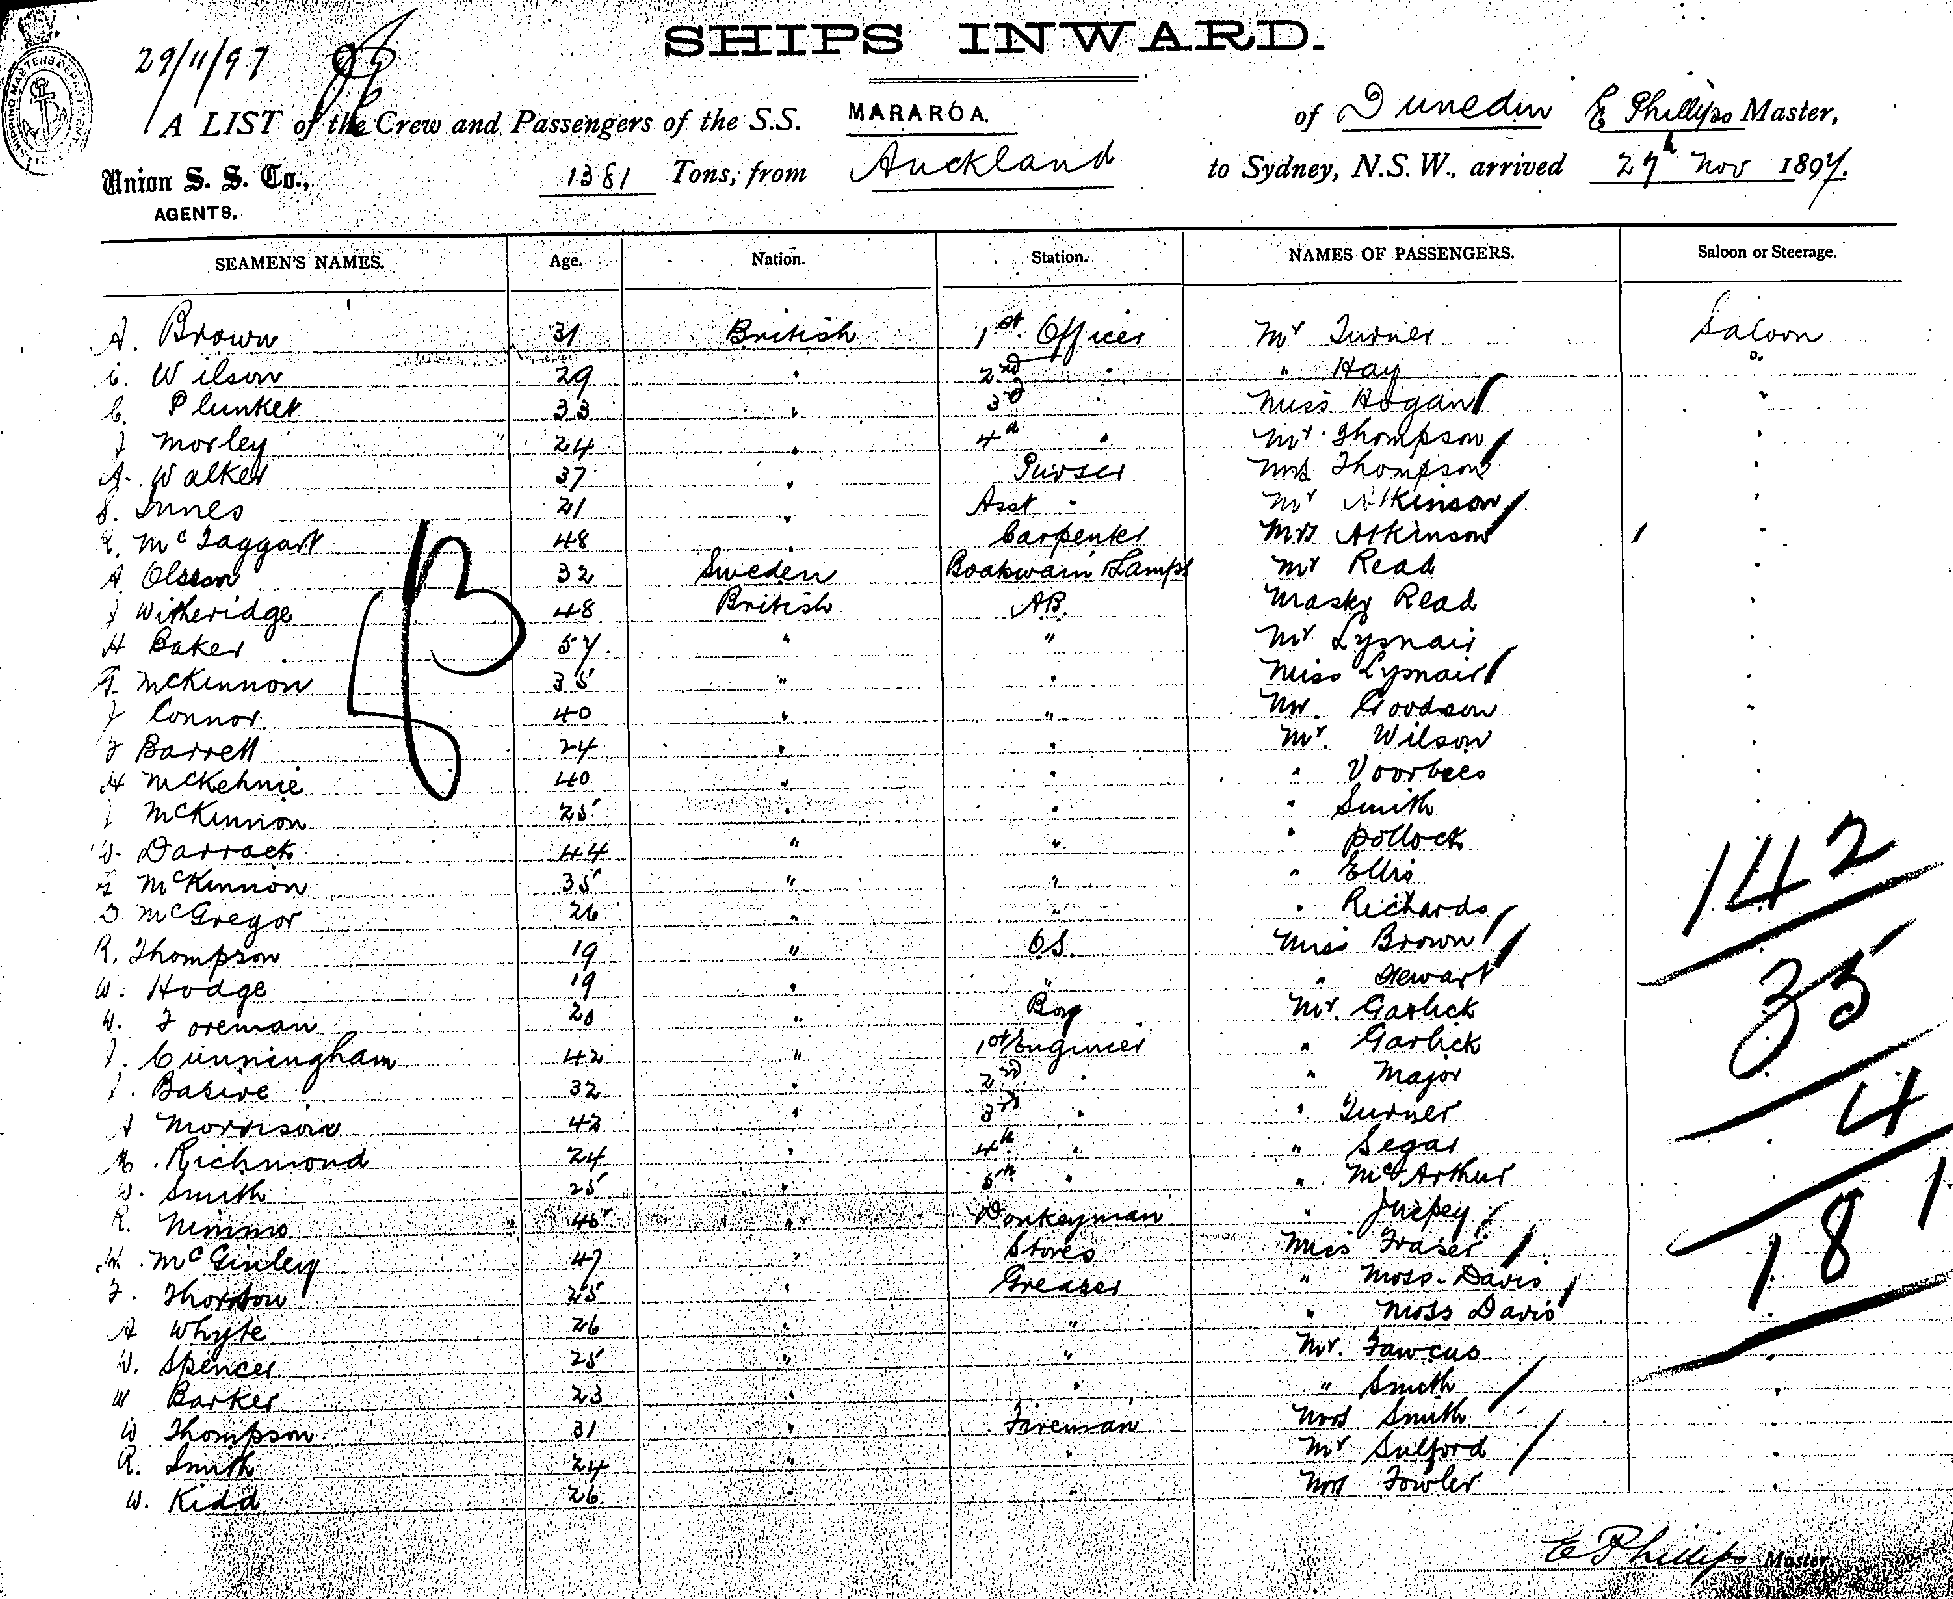 SHIPS INWARD.
29/11/97
A LIST of the Crew and Passengers of the S.S. MARAROA. of Dunedin E Phillips Master,
Union S. S. Co., AGENTS. 1381 Tons, from Auckland to Sydney, N.S.W., arrived 29th Nov 1897.
SEAMEN'S NAMES. Age. Nation. Station. NAMES OF PASSENGERS. Saloon or Steerage.
A. Brown 31 British 1st Officer Mr Turner Saloon
C. Wilson 29 " 2nd " " Hay "
C. Plunket 33 " 3d Miss Hogan "
J Morley 24 " 4th " Mr Thompson "
A. Walker 37 " Purser Mrs Thompson "
S. Innes 21 " Asst " Mr Atkinson "
McTaggart 48 " Carpenter Mrs Atkinson "
A. Olsson 32 Sweden Boatswain & Lamps Mr Read "
J Witheridge 48 British AB. Mastr Read "
H Baker 57 " " Mr Lysnair "
McKinnon 35 " " Miss Lysnair "
J Connor 40 " " Mr. Goodson "
J Barrett 24 " " Mr. Wilson "
H McKehnie 40 " " " Voorbees "
McKinnon 25 " " " Smith "
W. Darrack 44 " " " Pollock
McKinnon 35 " " " Ellis
D McGregor 26 " " " Richards
R. Thompson 19 " OS. Miss Brown
W. Hodge 19 " " " Stewart
W. Foreman 20 " Boy Mr. Garlick
J. Cunningham 42 " 1st Engineer " Garlick
J. Basire 32 " 2nd " " Major
A Morrison 42 " 3rd " " Turner
M. Richmond 24 " 4th " " Segar
W. Smith 25 " 5th " " McArthur
R. Nimmo 45 " Donkeyman "
W. McGinley 47 " Stores Miss Fraser
F. Thornton 25 " Greaser " Moss-Davis
A Whyte 26 " " " Moss Davis
W. Spencer 25 " " Mr. Fawcus
W Barker 23 " " " Smith
W Thompson 31 " Fireman Mrs Smith
R. Smith 24 " " Mr Sulford
W. Kidd 26 " " Mrs Fowler
142
35
4
181
E Phillips Master